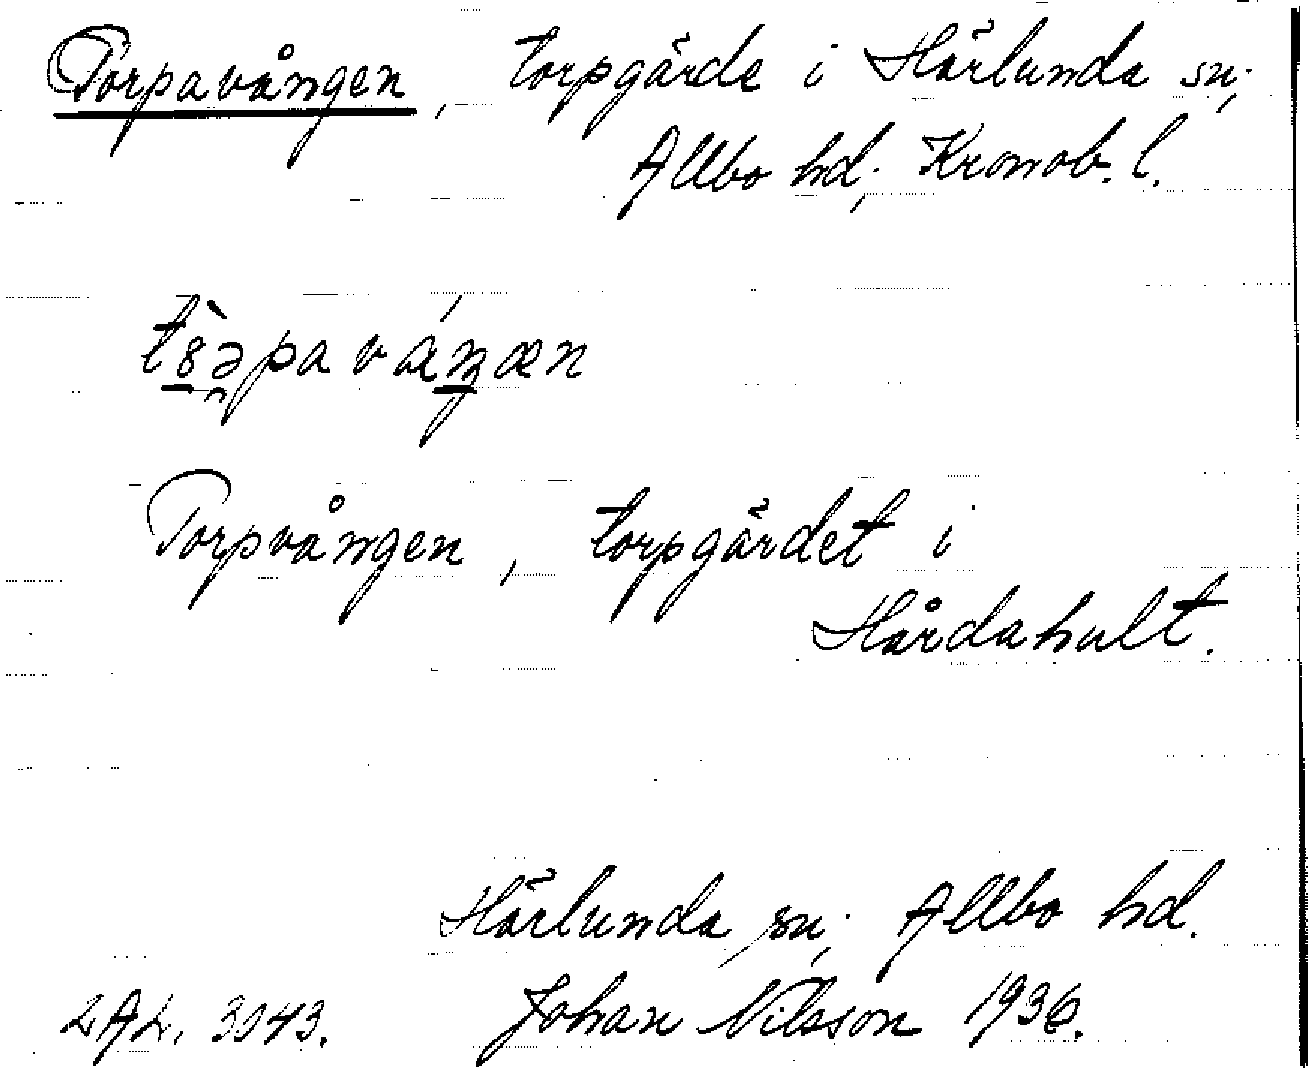 Torpavången, torpgärde i Härlunda sn.,
Allbo hd., Kronob. l.
Torpvången, torpgärdet i
Hårdahult.
Härlunda sn., Allbo hd.
LAL. 3043. Johan Nilsson 1936.